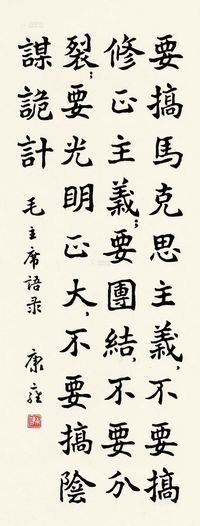 要搞馬克思主義,不要搞
修正主義;要團結,不要分
裂;要光明正大,不要搞陰
謀詭計
毛主席語录
康